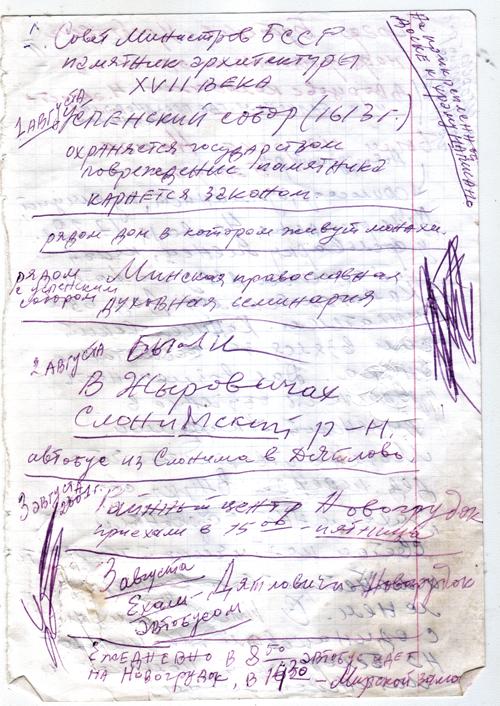 На прикрепленной доске к храму написано
Совет Министров БССР
памятник архитектуры
XVII ВЕКА
1 АВГУСТА
УСПЕНСКИЙ собор (1613 г.)
охраняется государством
повреждение памятника
карается законом
рядом дом в котором живут монахи.
РЯДОМ с успенским собором
Минская православная
духовная семинария
2 АВГУСТА
БЫЛИ
В Жыровичах
Слонимский р-н.
автобус из Слонима в Дятлово.
3 августа 2001г.
Районный центр Новогрудок
приехали в 15 00 - пятница
3 августа
Ехали - Дятловичи Новогрудок
автобусом
ЕЖЕДНЕВНО В 8 50 автобус идет
НА Новогрудок, в 30 - Мирской замо